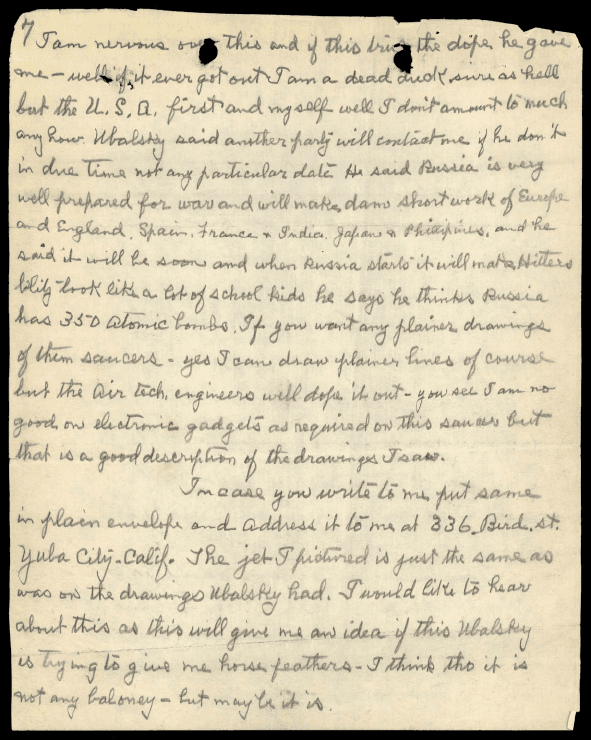 7
I am nervous over this and if this bird the dope he gave
me - well if it ever got out I am a dead duck sure as hell
but the U.S.A. first and myself well I don't amount to much
any how. Ubalsky said another party will contact me if he don't
in due time not any particular date He said Russia is very
well prepared for war and will make dam short work of Europe
and England, Spain, France & India, Japan & Phillipines, and he
said it will be soon and when Russia starts it will make Hitlers
blitz look like a lot of school kids he says he thinks Russia
has 350 Atomic bombs. If you want any plainer drawings
of them saucers - yes I can draw plainer lines of course
but the Air tech, engineers will dope it out - you see I am no
good on electronic gadgets as required on this saucer but
that is a good description of the drawings I saw.
In case you write to me put same
in plain envelope and address it to me at 336 Bird. st.
Yuba City - Calif. The jet I pictured is just the same as
was on the drawings Ubalsky had. I would like to hear
about this as this will give me an idea if this Ubalsky
is trying to give me horse feathers - I think tho it is
not any baloney - but may be it is.